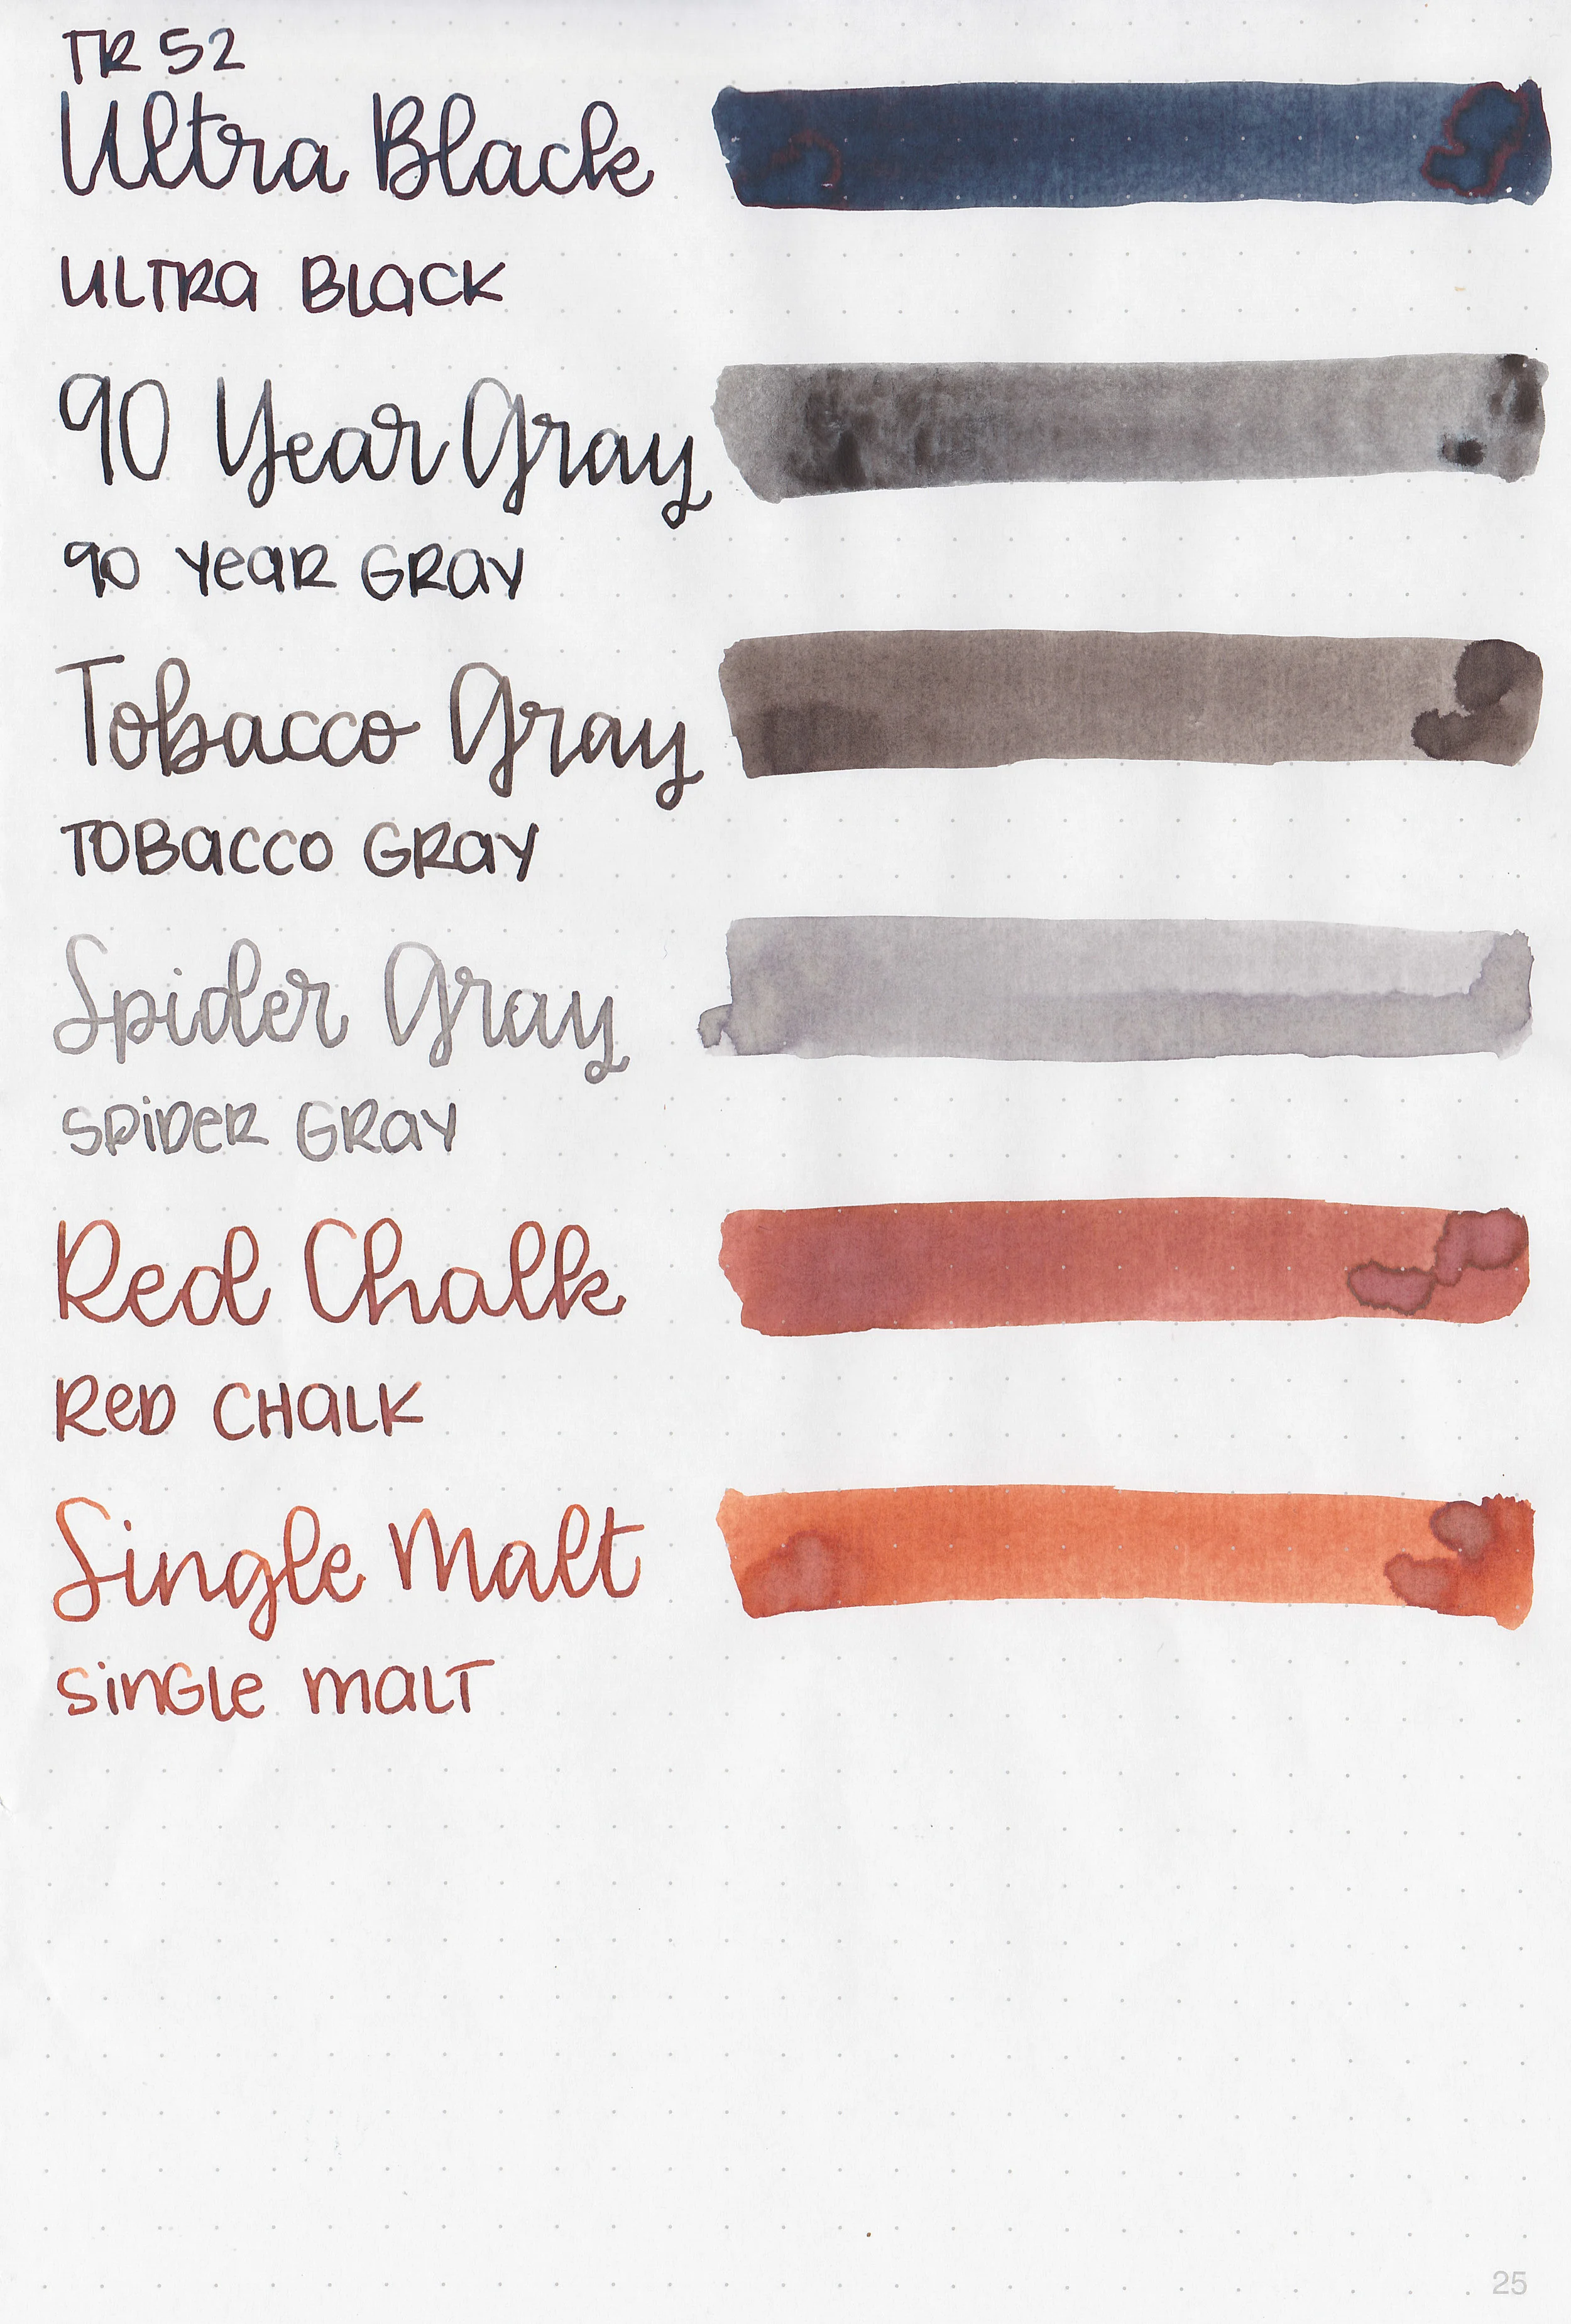 TR 52
Ultra Black
ULTRA BLACK
90 Year Gray
90 YEAR GRAY
Tobacco Gray
TOBACCO GRAY
Spider Gray
SPIDER GRAY
Red Chalk
RED CHALK
Single Malt
SINGLE MALT
25